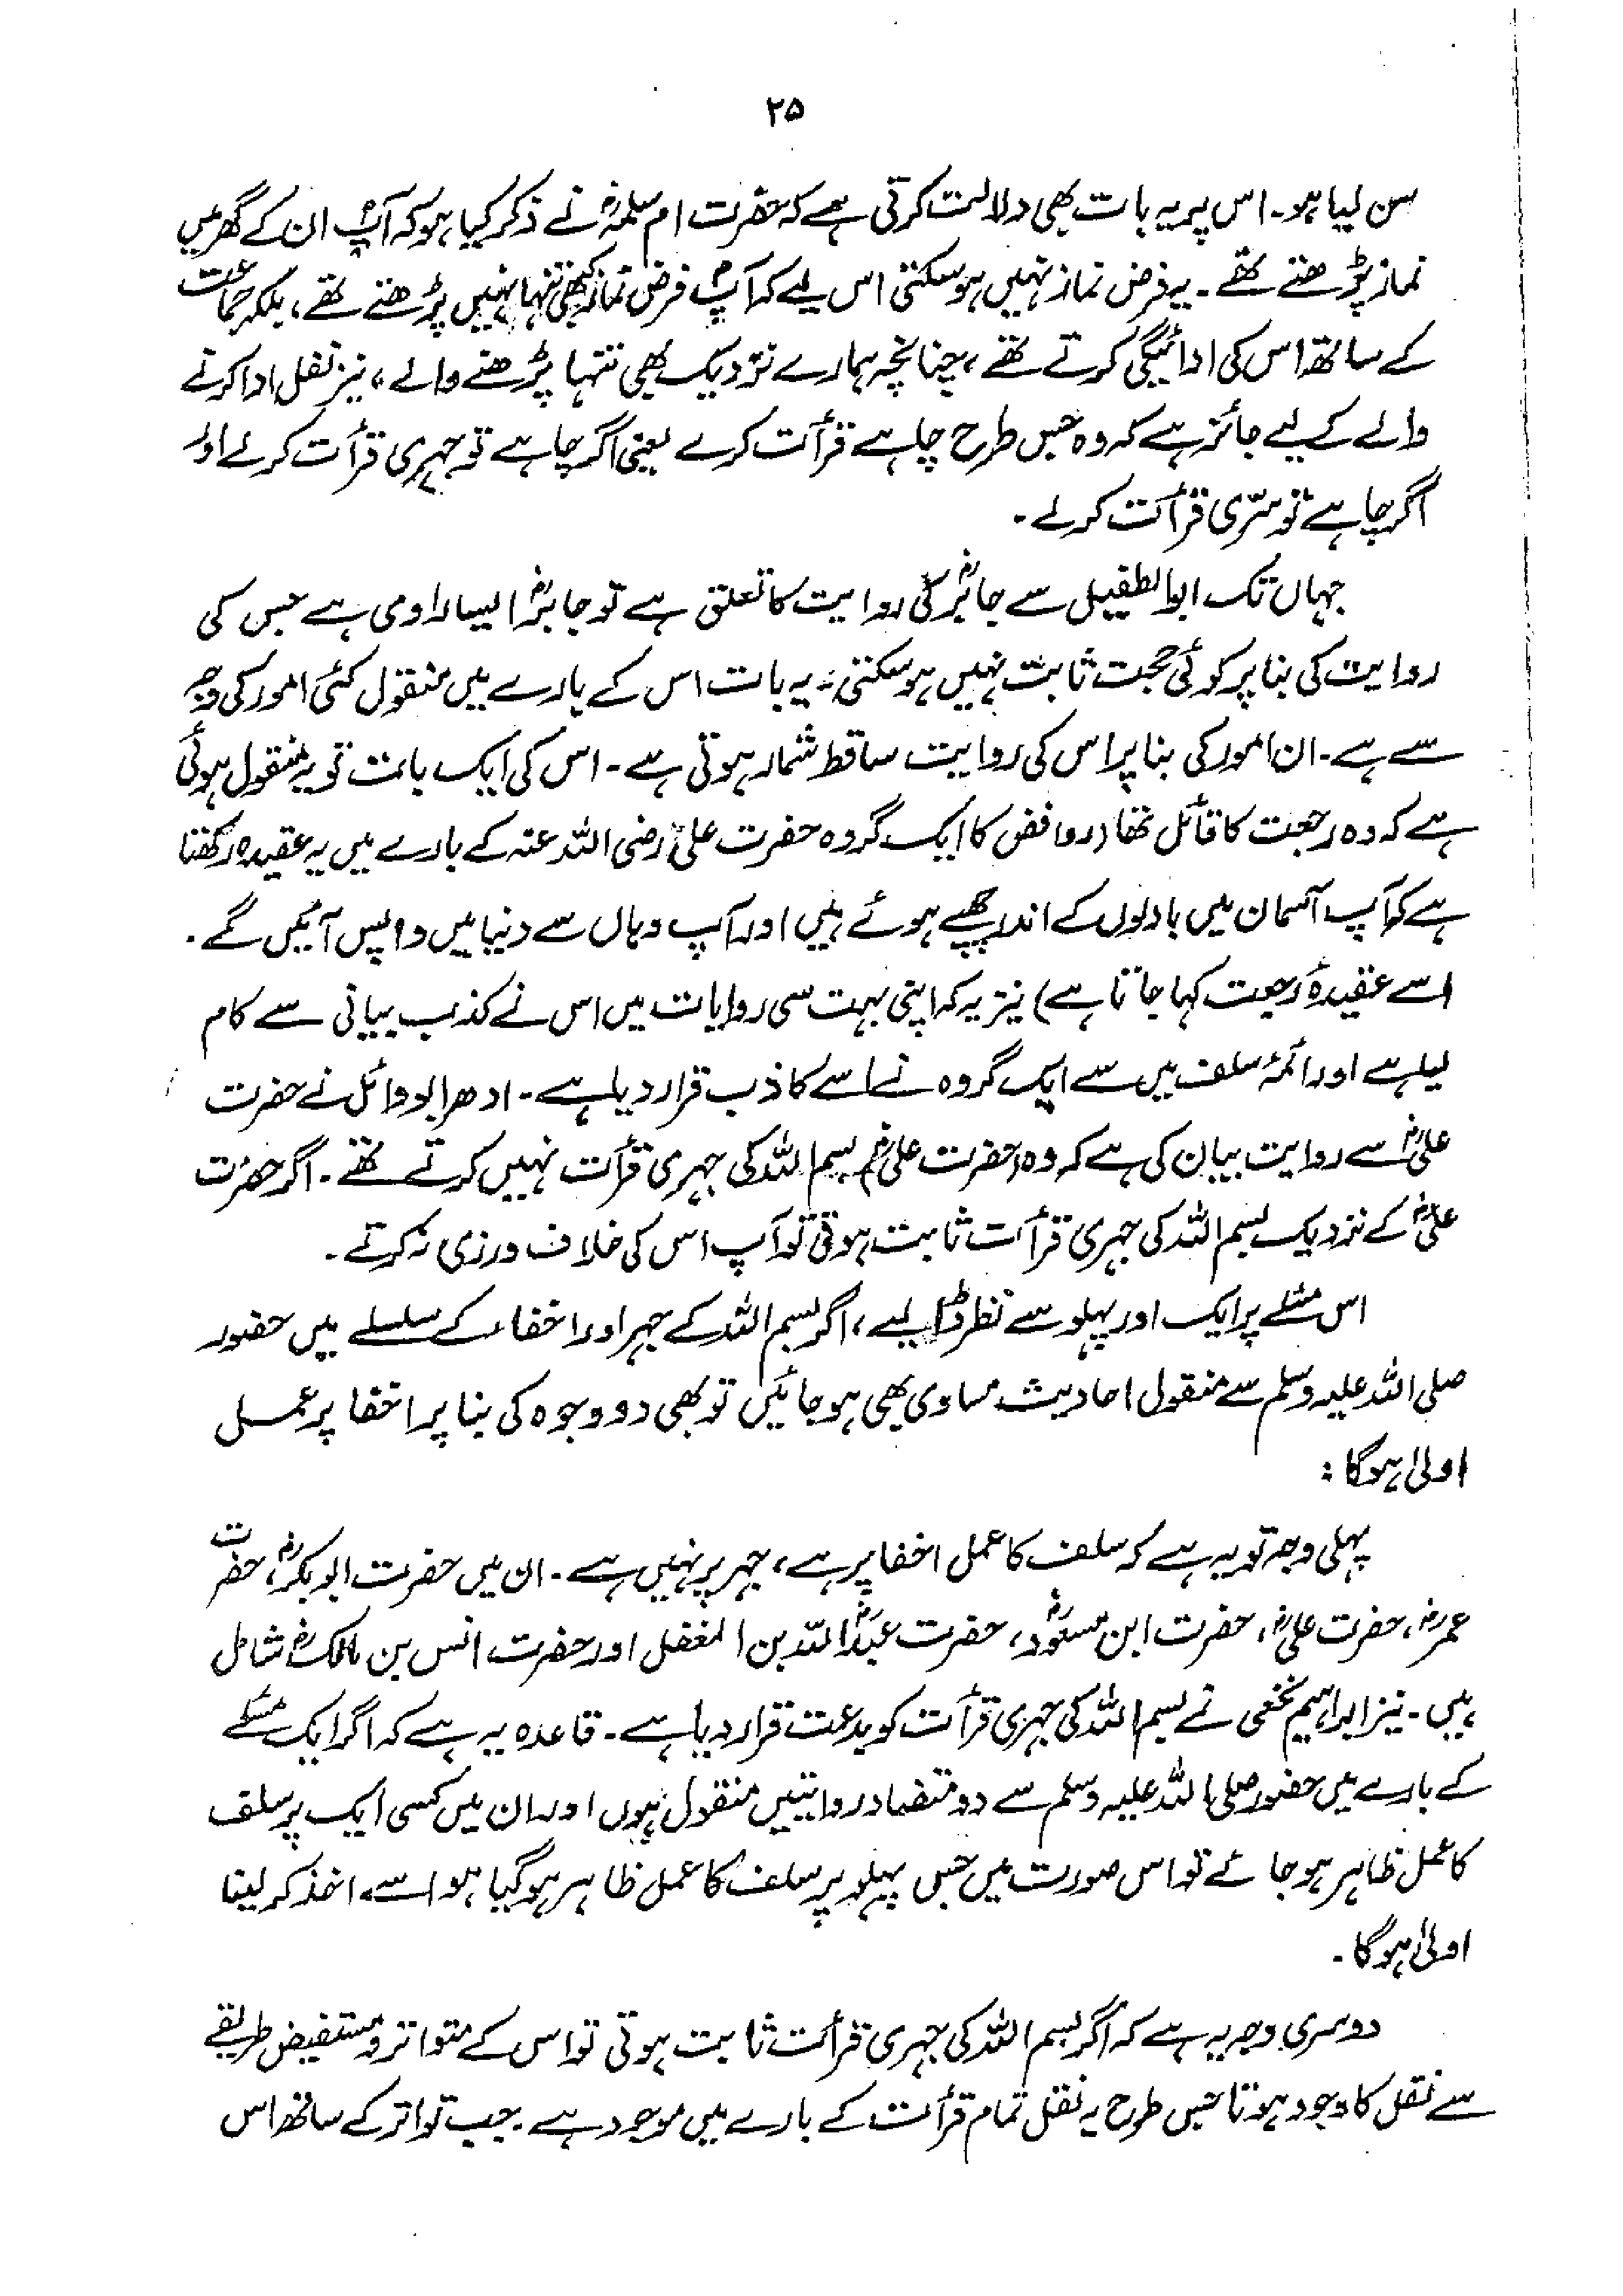 ۲۵
سن لیا ہو۔ اس پر یہ بات بھی دلالت کرتی ہے کہ حضرت ام سلمہؓ نے ذکر کیا ہو کہ آپؐ ان کے گھر میں
نماز پڑھتے تھے۔ یہ فرض نماز نہیں ہو سکتی اس لیے کہ آپؐ فرض نماز کبھی تنہا نہیں پڑھتے تھے، بلکہ جماعت
کے ساتھ اس کی ادائیگی کرتے تھے، چنانچہ ہمارے نزدیک بھی تنہا پڑھنے والے، نیز نفل ادا کرنے
والے کے لیے جائز ہے کہ وہ جس طرح چاہے قرأت کرے یعنی اگر چاہے تو جہری قرأت کرلے اور
اگر چاہے تو سرّی قرأت کرلے۔
جہاں تک ابوالطفیل سے جابرؓ کی روایت کا تعلق ہے تو جابرؓ ایسا راوی ہے جس کی
روایت کی بنا پر کوئی حجت ثابت نہیں ہو سکتی، یہ بات اس کے بارے میں منقول کئی امور کی وجہ
سے ہے۔ ان امور کی بنا پر اس کی روایت ساقط شمار ہوتی ہے۔ اس کی ایک بات تو یہ منقول ہوئی
ہے کہ وہ رجعت کا قائل تھا (روافض کا ایک گروہ حضرت علیؓ رضی اللہ عنہ کے بارے میں یہ عقیدہ رکھتا
ہے کہ آپ آسمان میں بادلوں کے اندر چھپے ہوئے ہیں اور آپ وہاں سے دنیا میں واپس آئیں گے۔
اسے عقیدۂ رجعت کہا جاتا ہے) نیز یہ کہ اپنی بہت سی روایات میں اس نے کذب بیانی سے کام
لیا ہے اور ائمۂ سلف میں سے ایک گروہ نے اسے کاذب قرار دیا ہے۔ ادھر ابو وائل نے حضرت
علیؓ سے روایت بیان کی ہے کہ وہ (حضرت علیؓ) بسم اللہ کی جہری قرأت نہیں کرتے تھے۔ اگر حضرت
علیؓ کے نزدیک بسم اللہ کی جہری قرأت ثابت ہوتی تو آپ اس کی خلاف ورزی نہ کرتے۔
اس مسئلے پر ایک اور پہلو سے نظر ڈالیے، اگر بسم اللہ کے جہر اور اخفاء کے سلسلے میں حضور
صلی اللہ علیہ وسلم سے منقول احادیث مساوی بھی ہو جائیں تو بھی دو وجوہ کی بنا پر اخفا پر عمل
اولیٰ ہوگا:
پہلی وجہ تو یہ ہے کہ سلف کا عمل اخفا پر ہے، جہر پر نہیں ہے۔ ان میں حضرت ابو بکرؓ، حضرت
عمرؓ، حضرت علیؓ، حضرت ابن مسعودؓ، حضرت عبداللہؓ بن المغفل اور حضرت انس بن مالکؓ شامل
ہیں۔ نیز ابراہیم نخعی نے بسم اللہ کی جہری قرأت کو بدعت قرار دیا ہے۔ قاعدہ یہ ہے کہ اگر ایک مسئلے
کے بارے میں حضور صلی اللہ علیہ وسلم سے دو متضاد روایتیں منقول ہوں اور ان میں کسی ایک پر سلف
کا عمل ظاہر ہو جائے تو اس صورت میں جس پہلو پر سلف کا عمل ظاہر ہو گیا ہو اسے اخذ کر لینا
اولیٰ ہوگا۔
دوسری وجہ یہ ہے کہ اگر بسم اللہ کی جہری قرأت ثابت ہوتی تو اس کے متواتر و مستفیض طریقے
سے نقل کا وجود ہوتا جس طرح یہ نقل تمام قرأت کے بارے میں موجود ہے۔ جب تواتر کے ساتھ اس